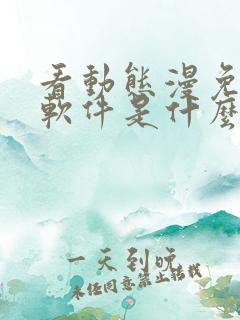 看動態漫免
軟件是什麼
一天到晚
未经同意禁止转载